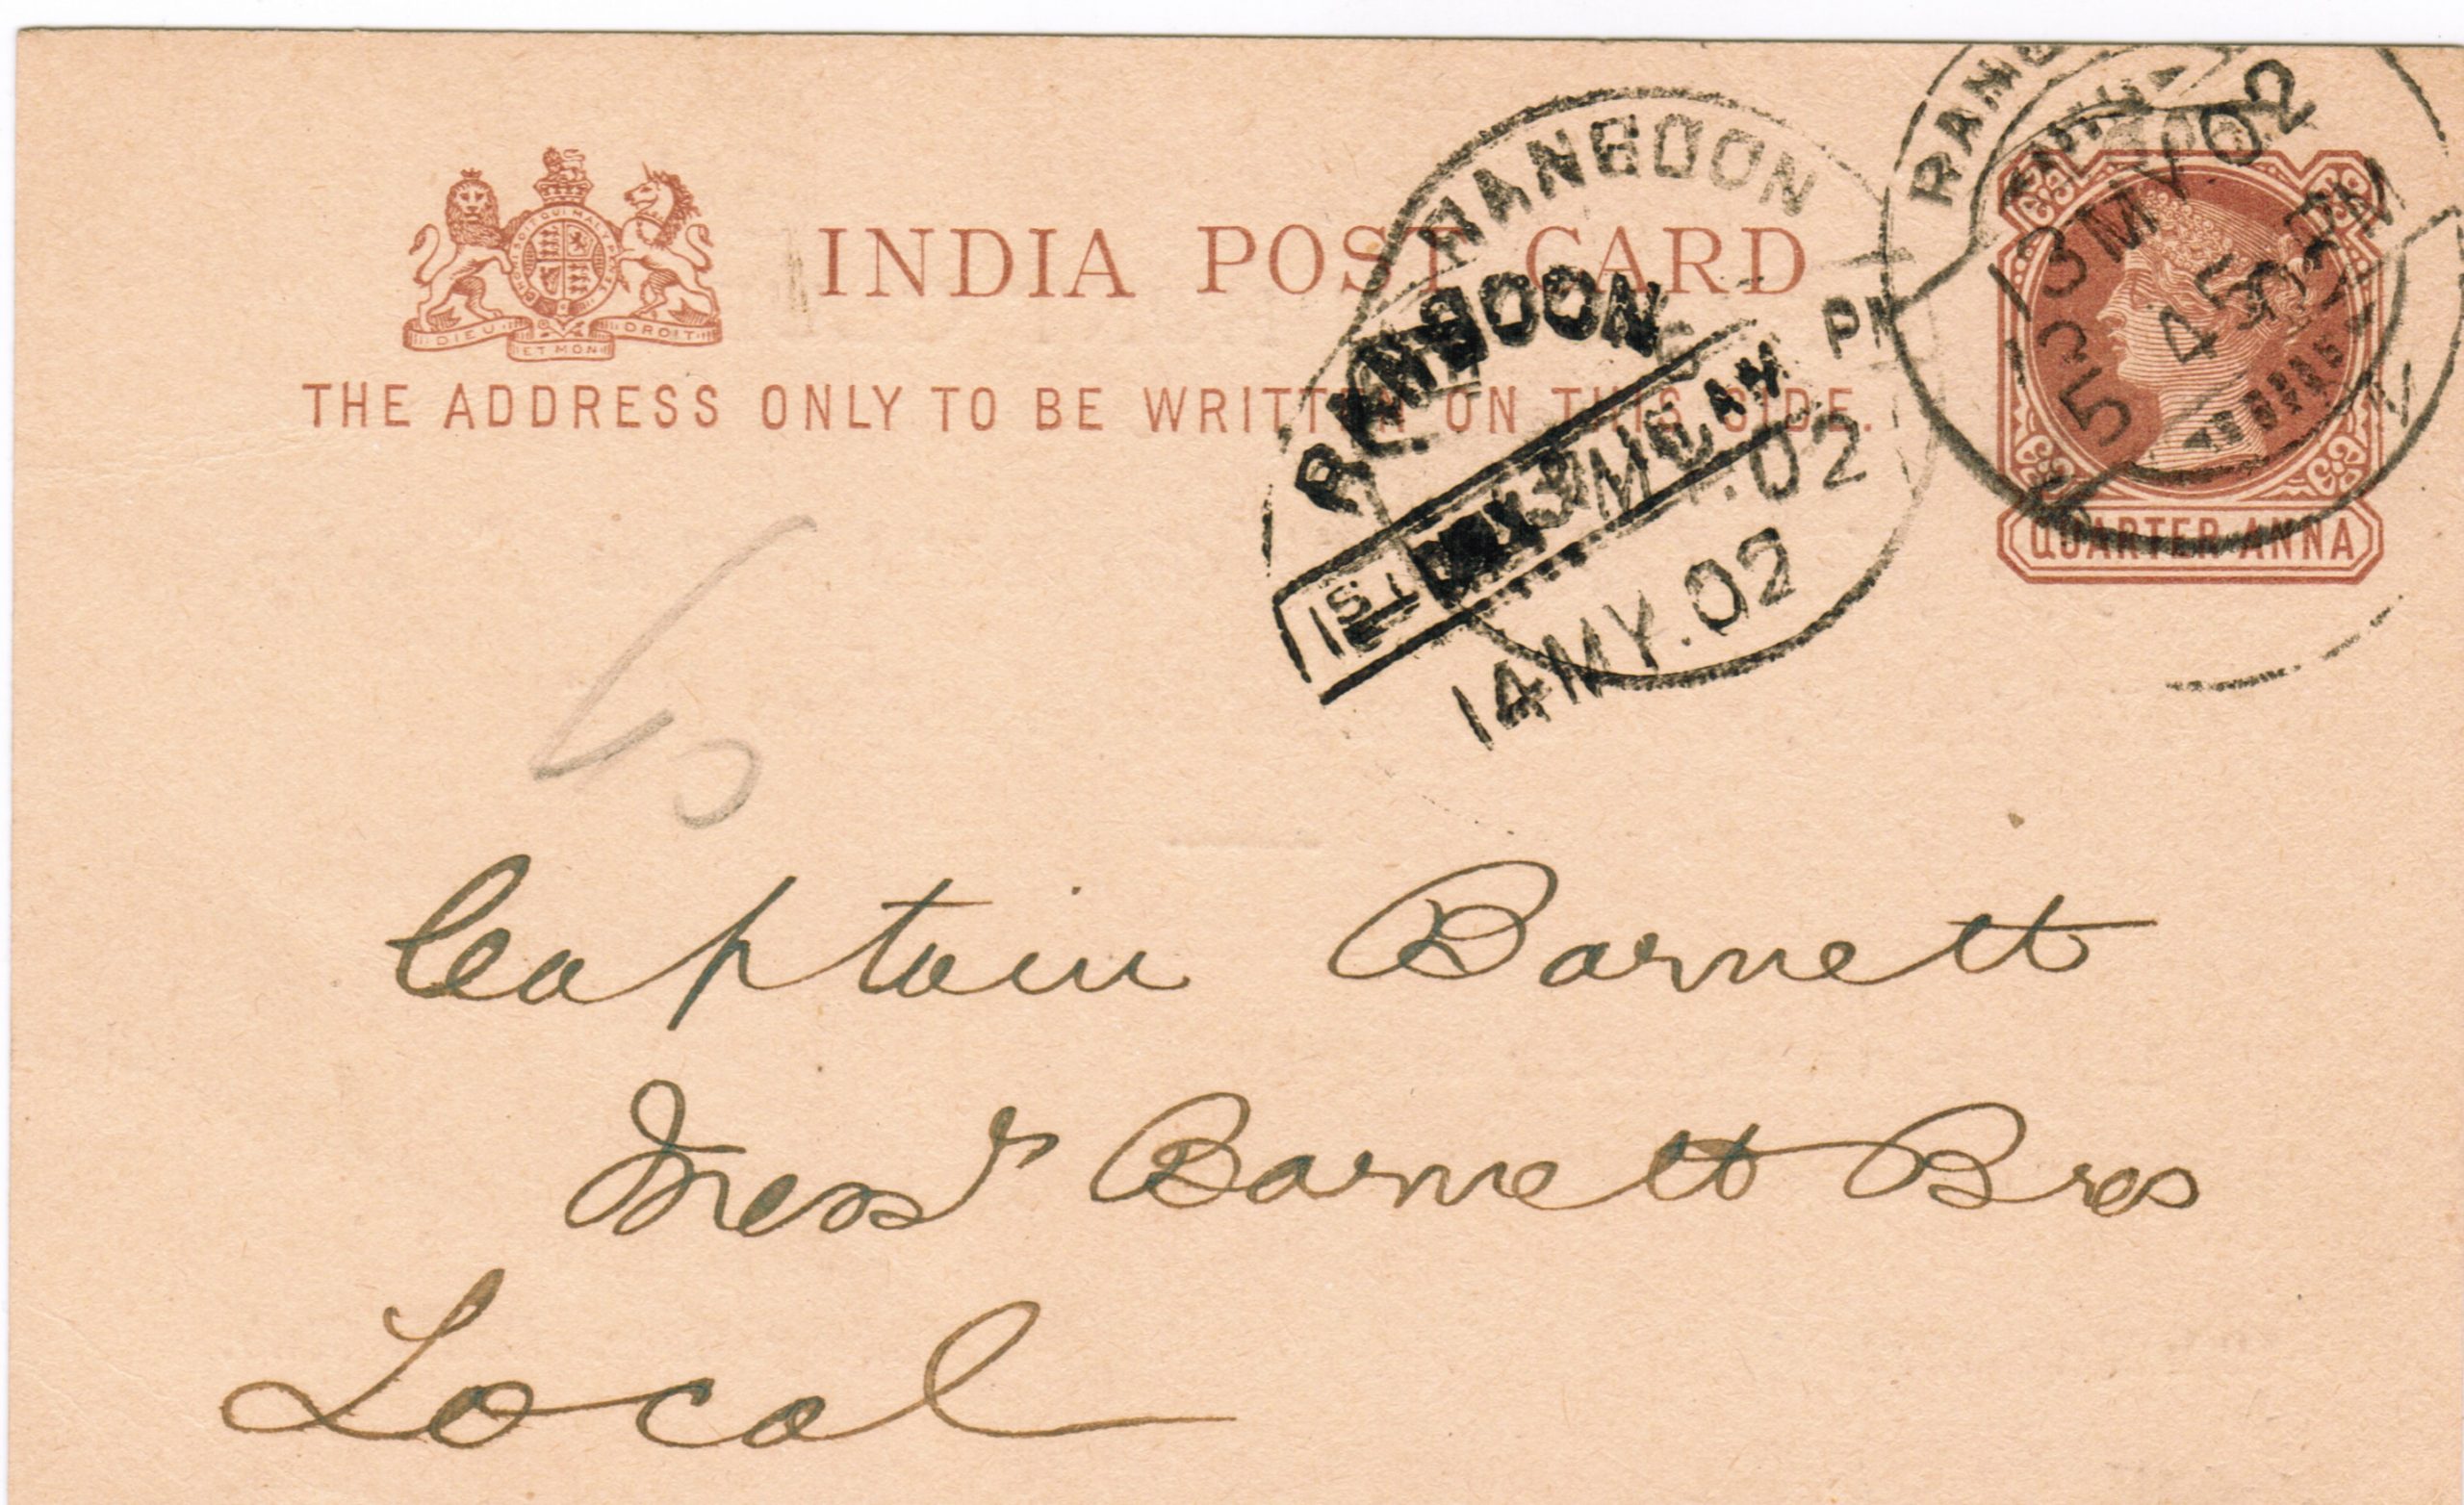 INDIA POST CARD
THE ADDRESS ONLY TO BE WRITTEN ON THIS SIDE.
HONI SOIT QUI MAL Y PENSE
DIEU ET MON DROIT
RANGOON
RANGOON
1ST
14 MY.02
PM
MY.02
13 MY 02
4 45 PM
QUARTER ANNA
Captain Barnett
Messrs Barnett Bros
Local